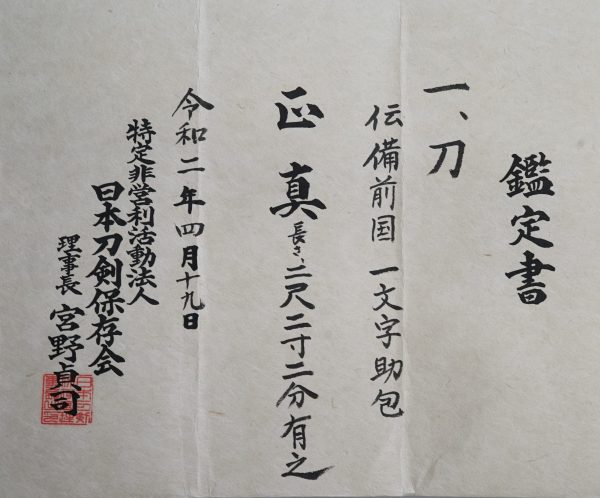 鑑定書
一、刀
伝備前国一文字助包
正真 長さ、二尺二寸二分有之
令和二年四月十九日
特定非営利活動法人
日本刀剣保存会
理事長 宮野貞司